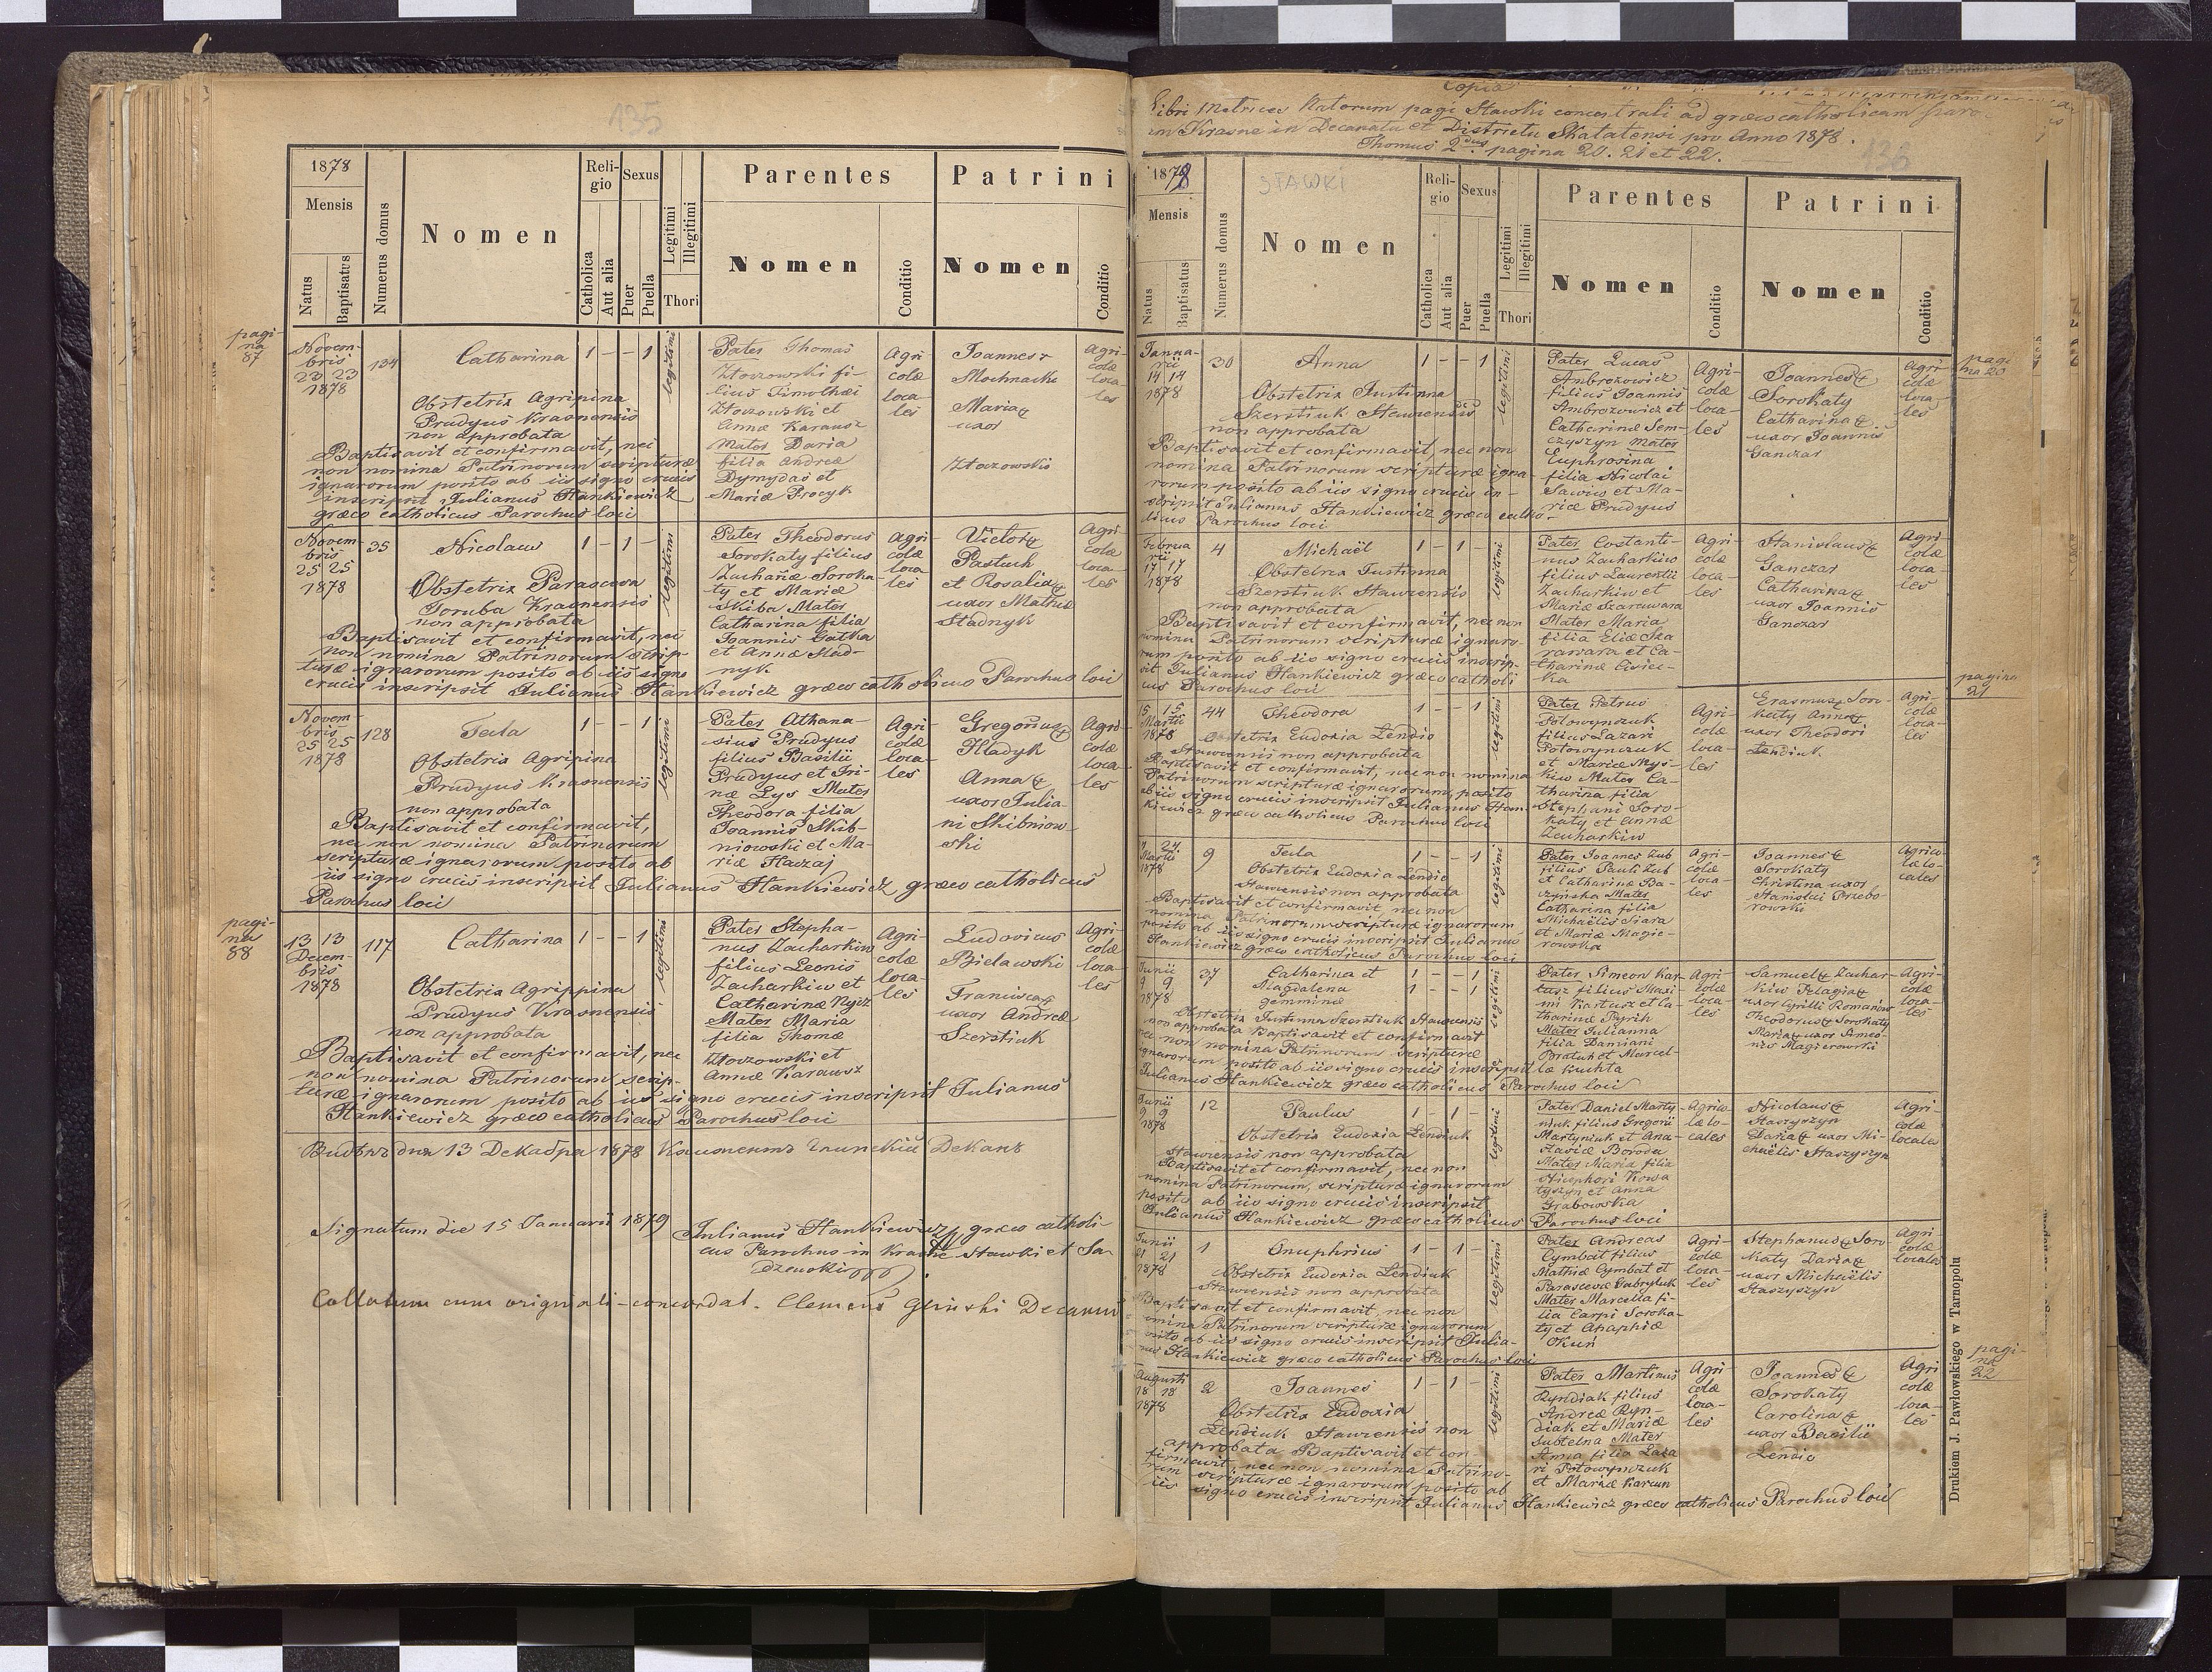 135
1878
Mensis
Natus
Baptisatus
Numerus domus
Nomen
Religio
Catholica
Aut alia
Sexus
Puer
Puella
Legitimi
Illegitimi
Thori
Parentes
Nomen
Conditio
Patrini
Nomen
Conditio
pagi-
na
87
Novem-
bris
23 23
1878
134
Catharina
1 - - 1
legitimi
Obstetrix Agripina
Prudyus Krasnensis
non approbata
Baptisavit et confirmavit, nec
non nomina Patrinorum scripturæ
ignarorum posito ab iis signo crucis
inscripsit Julianus Hankiewicz
græco catholicus Parochus loci
Pater Thomas
Złoczowski fi-
lius Timothæi
Złoczowski et
Annæ Karausz
Mater Daria
filia Andreæ
Dymydas et
Mariæ Procyk
Agri
colæ
loca-
les
Joannes +
Mochnacki
Maria +
uxor
Złoczowski
Agri-
colæ
loca-
les
Novem-
bris
25 25
1878
35
Nicolaus
1 - 1 -
legitimi
Obstetrix Parasceva
Soruba Krasnensis
non approbata
Baptisavit et confirmavit, nec
non nomina Patrinorum scrip-
turæ ignarorum posito ab iis signo
crucis inscripsit Julianus Hankiewicz græco catholicus Parochus loci
Pater Theodorus
Sorokaty filius
Zachariæ Soroka-
ty et Mariæ
Skiba Mater
Catharina filia
Joannis Gatka
et Annæ Stad-
nyk
Agri-
colæ
loca-
les
Victor +
Pastuch
et Rosalia +
uxor Mathiæ
Stadnyk
Agri
colæ
loca-
les
Novem-
bris
25 25
1878
128
Tecla
1 - - 1
legitimi
Obstetrix Agripina
Prudyus Krasnensis
non approbata
Baptisavit et confirmavit,
nec non nomina Patrinorum
scripturæ ignarorum posito ab
iis signo crucis inscripsit Julianus Hankiewicz, græco catholicus
Parochus loci
Pater Athana-
sius Prudyus
filius Basilii
Prudyus et Iri-
næ Lys Mater
Theodora filia
Joannis Skib-
niowski et Ma-
riæ Haczaj
Agri-
colæ
loca-
les
Gregorius +
Hladyk
Anna +
uxor Julia-
ni Skibniow-
ski
Agri-
colæ
loca-
les
pagi-
na
88
13 13
Decem-
bris
1878
117
Catharina
1 - - 1
legitimi
Obstetrix Agrippina
Prudyus Krasnensis
non approbata
Baptisavit et confirmavit, nec
non nomina Patrinorum scrip-
turæ ignarorum posito ab iis signo crucis inscripsit Julianus
Hankiewicz græco catholicus Parochus loci
Pater Stepha-
nus Zacharkiw
filius Leonis
Zacharkiw et
Catharinæ Nycz
Mater Maria
filia Thomæ
Złoczowski et
Annæ Karausz
Agri-
colæ
loca-
les
Ludovicus
Bielawski
Francisca +
uxor Andreæ
Szerstiuk
Agri-
colæ
loca-
les
дня 13 Декабря 1878 Деканъ
Signatum die 15 Januarii 1879 Julianus Hankiewicz græco catholi-
cus Parochus in Krasne Stawki et Sa-
dzawki
Collatum cum originali-concordat. Clemens Glinski Decanus
Copia
Libri Metrices Natorum pagi Stawki concentrati ad græco catholicam paro-
in Krasne in Decanatu et Districtu Skatatensi pro Anno 1878.
Thomus 2dus pagina 20. 21 et 22.
136
1878
STAWKI
Mensis
Natus
Baptisatus
Numerus domus
Nomen
Religio
Catholica
Aut alia
Sexus
Puer
Puella
Legitimi
Illegitimi
Thori
Parentes
Nomen
Conditio
Patrini
Nomen
Conditio
Janua-
rii
14 14
1878
30
Anna
1 - - 1
legitimi
Obstetrix Justinna
Szerstiuk Stawensis
non approbata
Baptisavit et confirmavit, nec non
nomina Patrinorum scripturæ igna-
rorum posito ab iis signo crucis in-
scripsit Julianus Hankiewicz græco catho-
licus Parochus loci
Pater Lucas
Ambrozowicz
filius Joannis
Ambrozowicz et
Catharinæ Sem-
czyszyn Mater
Euphrosina
filia Nicolai
Sawicz et Ma-
riæ Prudyus
Agri-
colæ
loca-
les
Joannes +
Sorokaty
Catharina +
uxor Joannis
Ganczar
Agri-
colæ
loca-
les
pagi
na 20
Februa
rii
17 17
1878
4
Michaël
1 - 1 -
legitimi
Obstetrix Justinna
Szerstiuk Stawensis
non approbata
Baptisavit et confirmavit, nec non
nomina Patrinorum scripturæ ignaro-
rum posito ab iis signo crucis inscrip-
sit Julianus Hankiewicz græco catholi
cus Parochus loci
Pater Costanti-
nus Zacharkiw
filius Laurentii
Zacharkiw et
Mariæ Szarawara
Mater Maria
filia Eliæ Sza
rawara et Ca-
tharinæ Cwiec-
ka
Agri-
colæ
loca-
les
Stanislaus +
Ganczar
Catharina +
uxor Joannis
Ganczar
Agri-
colæ
loca-
les
pagina
21
15 15
Martii
1878
44
Theodora
1 - - 1
legitimi
Obstetrix Eudoxia Lendio
Stawensis non approbata
Baptisavit et confirmavit, nec non nomina
Patrinorum scripturæ ignarorum, posito
ab iis signo crucis inscripsit Julianus Han-
kiewicz græco catholicus Parochus loci
Pater Petrus
Potowynczuk
filius Lazari
Potowynczuk
et Mariæ Mys-
kiw Mater Ca-
tharina filia
Stephani Soro-
katy et Annæ
Zacharkiw
Agri-
colæ
loca-
les
Erasmus + Soro-
katy Anna +
uxor Theodori
Lendiuk
Agri-
colæ
loca-
les
24
Martii
1878
9
Tecla
1 - - 1
legitimi
Obstetrix Eudoxia Lendio
Stawensis non approbata
Baptisavit et confirmavit nec non
nomina Patrinorum scripturæ ignarorum,
posito ab iis signo crucis inscripsit Julianus
Hankiewicz græco catholicus Parochus loci
Pater Joannes Zub
filius Pauli Zub
et Catharinæ Ba-
czynska Mater
Catharina filia
Michaëlis Siara
et Mariæ Magie-
rowska
Agri-
colæ
loca-
les
Joannes +
Sorokaty
Christina uxor
Stanislai Przebo-
rowski
Agrico-
læ lo-
cales
Junii
9 9
1878
37
Catharina et
Magdalena
gemminæ
1 - - 1
1 - - 1
legitimi
Obstetrix Justinna Szerstiuk Stawensis
non approbata Baptisavit et confirmavit
nec non nomina Patrinorum scripturæ
ignarorum posito ab iis signo crucis inscripsit
Julianus Hankiewicz græco catholicus Parochus loci
Pater Simeon Kar-
tusz filius Maxi-
mi Kartusz et Ca-
tharinæ Pyrih
Mater Julianna
filia Damiani
Bratuh et Marcel-
læ Kuchta
Agri-
colæ
loca-
les
Samuel + Zachar-
kiw Pelagia +
uxor Cyrilli Romaniow
Theodorus + Sorokaty
Maria + uxor Simeo-
nis Magierowski
Agri-
colæ
loca-
les
Junii
9 9
1878
12
Paulus
1 - 1 -
legitimi
Obstetrix Eudoxia Lendiuk
Stawensis non approbata
Baptisavit et confirmavit, nec non
nomina Patrinorum, scripturæ ignarorum
posito ab iis signo crucis inscripsit
Julianus Hankiewicz græco catholicus
Parochus loci
Pater Daniel Marty-
niuk filius Gregorii
Martyniuk et Ana-
staziæ Boroda
Mater Maria filia
Nicephori Kowa
tyszyn et Anna
Grabowska
Agrico-
læ lo-
cales
Nicolaus +
Staszyszyn
Daria + uxor Mi-
chaëlis Staszyszyn
Agri-
colæ
locales
Junii
21 21
1878
1
Onuphrius
1 - 1 -
legitimi
Obstetrix Eudoxia Lendiuk
Stawensis non approbata
Baptisavit et confirmavit, nec non
nomina Patrinorum scripturæ ignarorum
posito ab iis signo crucis inscripsit Julia-
nus Hankiewicz græco catholicus Parochus loci
Pater Andreas
Cymbat filius
Mathiæ Cymbat et
Parascevæ Gabryluk
Mater Marcella fi-
lia Carpi Soroka-
ty et Ahaphiæ
Okuń
Agri-
colæ
loca-
les
Stephanus + Soro-
katy Daria +
uxor Michaëlis
Staszyszyn
Agri-
colæ
locales
Augusti
18 18
1878
2
Joannes
1 - 1 -
legitimi
Obstetrix Eudoxia
Lendiuk Stawensis non
approbata Baptisavit et con-
firmavit, nec non nomina Patrino-
rum scripturæ ignarorum posito ab
iis signo crucis inscripsit Julianus Hankiewicz græco catholicus Parochus loci
Pater Martinus
Ryndiak filius
Andreæ Ryn-
diak et Mariæ
Subtelna Mater
Anna filia Laza
ri Potowynczuk
et Mariæ Karcun
Agri
colæ
loca-
les
Joannes +
Sorokaty
Carolina +
uxor Basilii
Lendio
Agri
colæ
loca-
les
pagi-
na
22
Drukiem J. Pawłowskiego w Tarnopolu